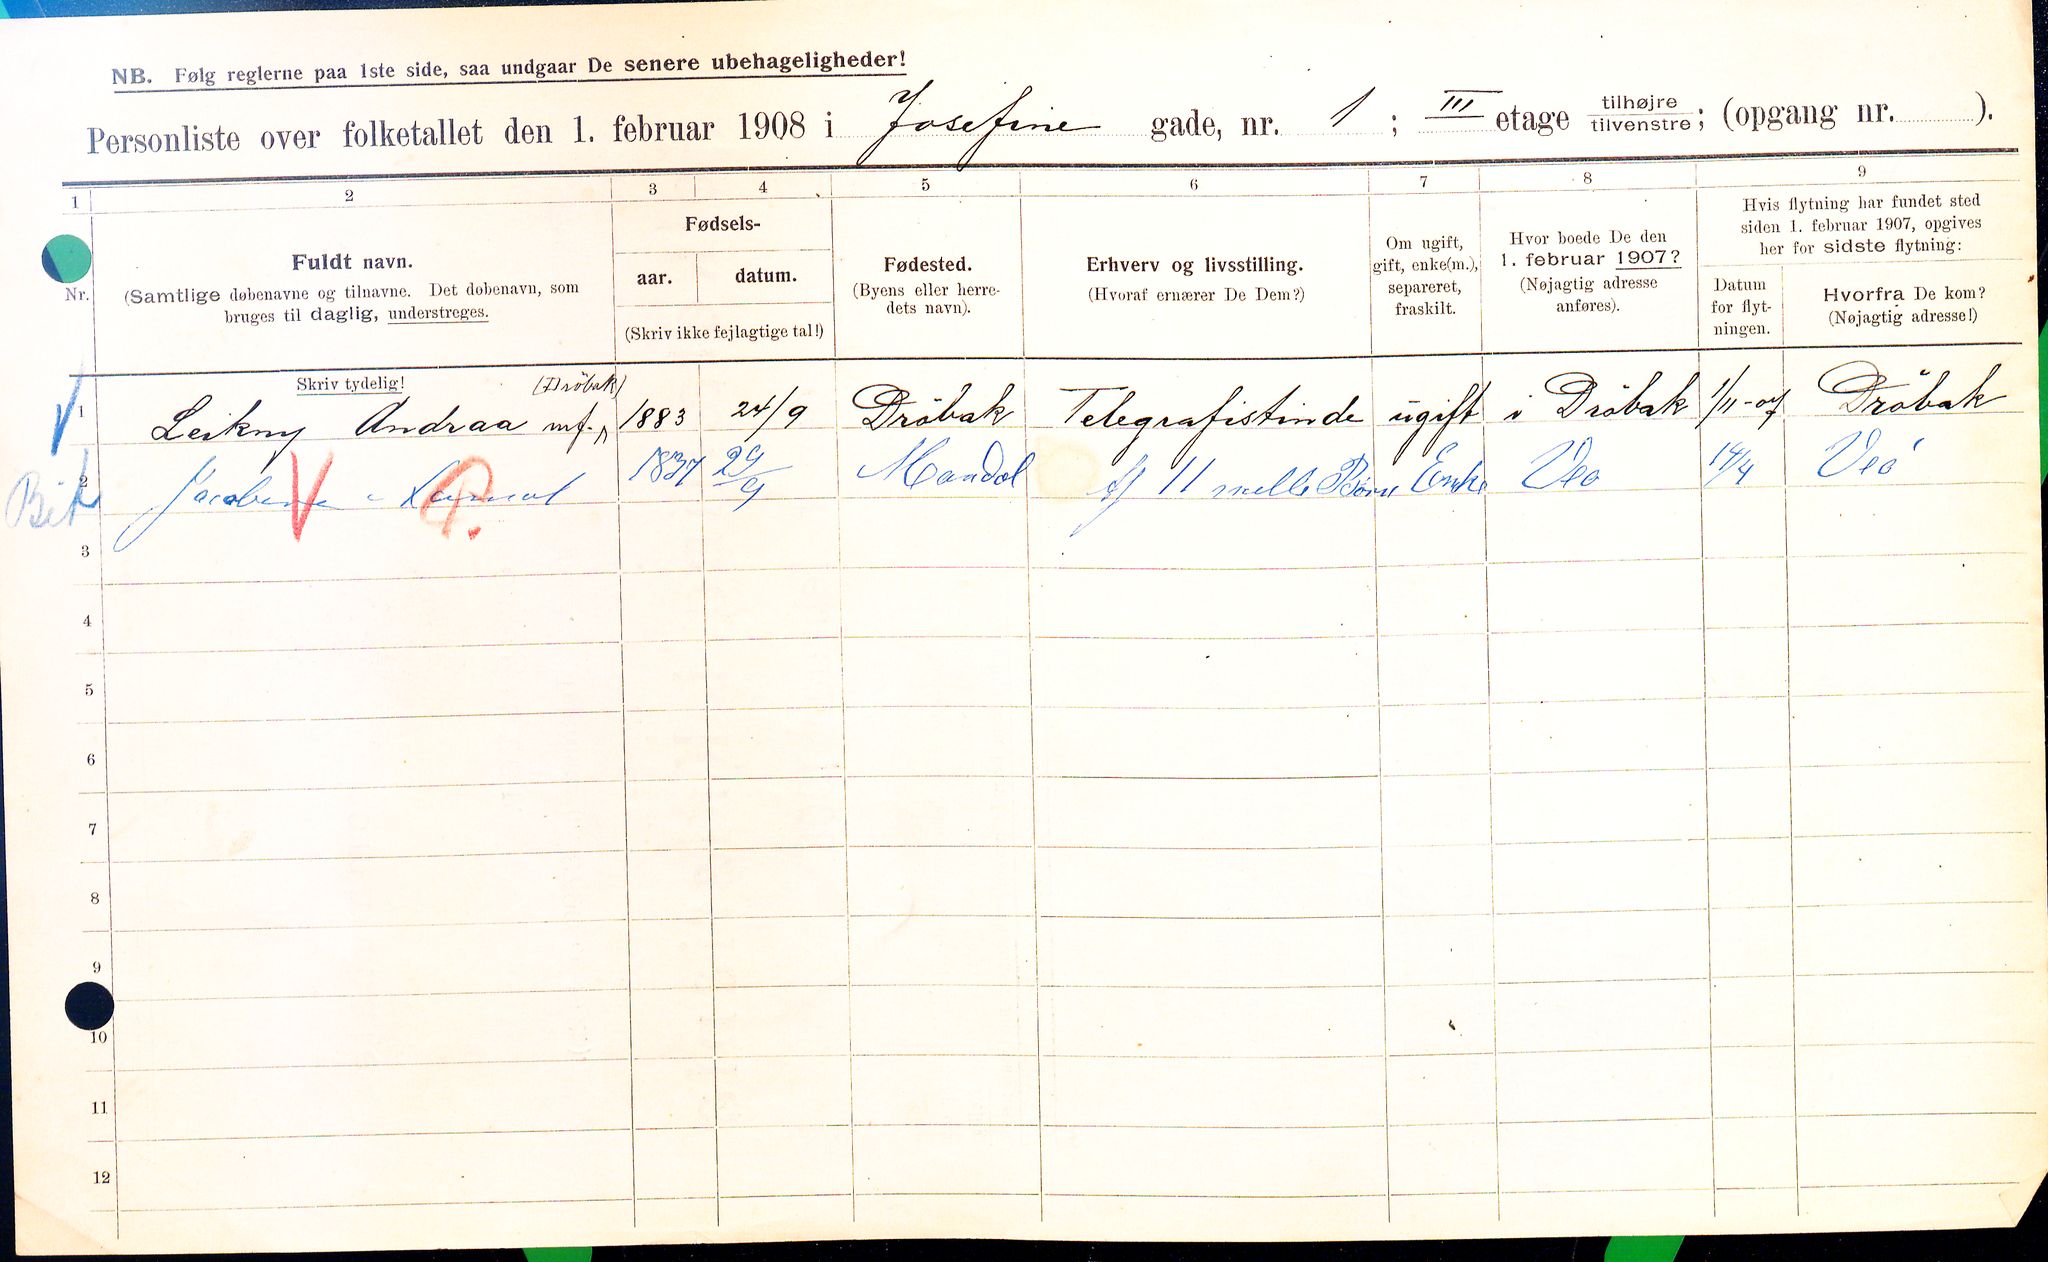 NB. Følg reglerne paa 1ste side, saa undgaar De senere ubehageligheder!
Personliste over folketallet den 1. februar 1908 i Josefine gade, nr. 1; III etage tilhøjre/tilvenstre; (opgang nr. ).
1 2 3 4 5 6 7 8 9
Nr.
Fuldt navn.
(Samtlige døbenavne og tilnavne. Det døbenavn, som
bruges til daglig, understreges.
Fødsels-
aar. datum.
(Skriv ikke fejlagtige tal!)
Fødested.
(Byens eller herre-
dets navn).
Erhverv og livsstilling.
(Hvoraf ernærer De Dem?)
Om ugift,
gift, enke(m.),
separeret,
fraskilt.
Hvor boede De den
1. februar 1907?
(Nøjagtig adresse
anføres).
Hvis flytning har fundet sted
siden 1. februar 1907, opgives
her for sidste flytning:
Datum
for flyt-
ningen.
Hvorfra De kom?
(Nøjagtig adresse!)
Skriv tydelig! (Dröbak)
1 Leikny Andraa 1883 24/9 Dröbak Telegrafistinde ugift i Dröbak 1/11-07 Dröbak
2 1837 29/9 Mandal 11 Börn Enke Veö 14/4 Veö
3
4
5
6
7
8
9
10
11
12